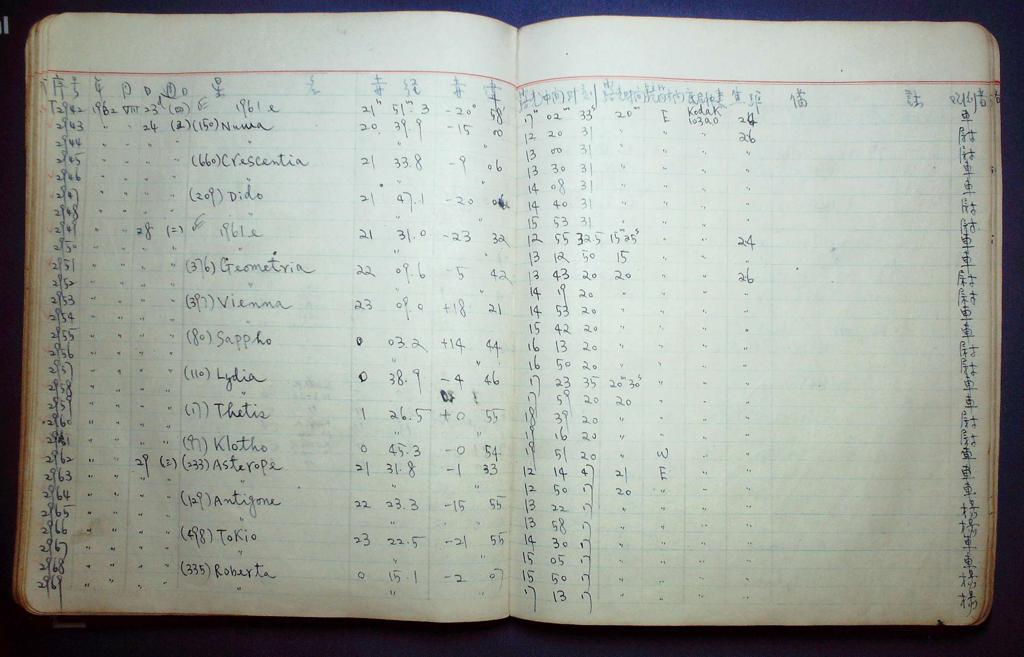 序号 年 月 日 週日 星 名 赤 経 赤 露光中間時刻 露光時間 備 註
2942 1962 VIII 23 1961e 21 51.3 -20 58 17 02 33 20 E Kodak 103aO 24 車
2943 " " 24 (150) Nuwa 20 39.9 -15 00 12 20 31 " " " 26
2944 " " " " " 13 00 31 " " " "
2945 " " " (660) Crescentia 21 33.8 -9 06 13 30 31 " " " " 車
2946 " " " " " 14 08 31 " " " " 車
2947 " " " (209) Dido 21 47.1 -20 14 40 31 " " " "
2948 " " " " " 15 53 31 " " " "
2949 " " 28 (二) 1961e 21 31.0 -23 32 12 55 32.5 15 25 " " 24 車
2950 " " " " " 13 12 50 15 " " " 車
2951 " " " (376) Geometria 22 09.6 -5 42 13 43 20 20 " " 26
2952 " " " " " 14 19 20 " " " "
2953 " " " (397) Vienna 23 09.0 +18 21 14 53 20 " " " " 車
2954 " " " " " 15 42 20 " " " " 車
2955 " " " (80) Sappho 0 03.2 +14 44 16 13 20 " " " "
2956 " " " " " 16 50 20 " " " "
2957 " " " (110) Lydia 0 38.9 -4 46 17 23 35 20 30 " " " 車
2958 " " " " 17 59 20 20 " " " 車
2959 " " " (17) Thetis 1 26.5 +0 55 18 39 20 " " " "
2960 " " " " " 19 16 20 " " " "
2961 " " " (97) Klotho 0 45.3 -0 54 19 51 20 " W " " 車
2962 " " 29 (三) (233) Asterope 21 31.8 -1 33 12 14 17 21 E " " 車
2963 " " " " " 12 50 17 20 " " " 車
2964 " " " (129) Antigone 22 23.3 -15 55 13 22 17 " " " " 楊
2965 " " " " " 13 58 17 " " " " 楊
2966 " " " (498) Tokio 23 22.5 -21 55 14 30 17 " " " " 車
2967 " " " " " 15 05 17 " " " " 車
2968 " " " (335) Roberta 0 15.1 -2 07 15 50 17 " " " " 楊
2969 " " " " " 17 13 17 " " " " 楊